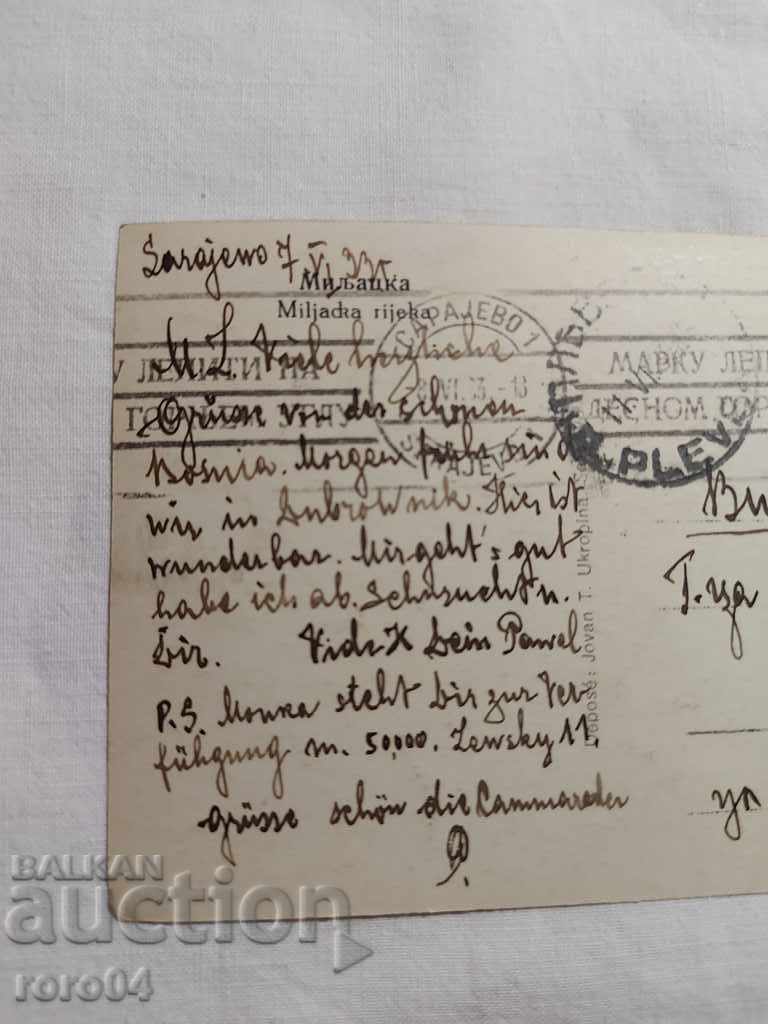 Sarajewo 7 VI 33
Миљацка
Miljacka rijeka
САРАЈЕВО 1
ЛЕПИТИ НА
МАРКУ ЛЕП
ДЕСНОМ ГОР
PLEV
M. L. Viele herzliche
Grüsse von der schönen
Bosnia. Morgen früh sind
wir in Dubrownik. Hier ist
wunderbar. Mir geht's gut
habe ich ab. Sehnsucht n.
Dir. Dein Pawel
P.S. steht Dir zur Ver-
fühgung m. 50,000. Lewsky 11.
Grüsse schön die Cammarader
Deposé: Jovan T. Ukropina
Т. ца
ул
BALKAN
auction
roro04